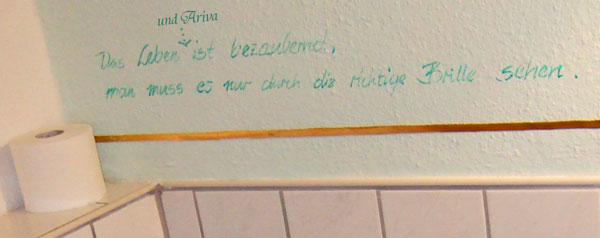 und Ariva
Das Leben ist bezaubernd,
man muss es nur durch die richtige Brille sehen.